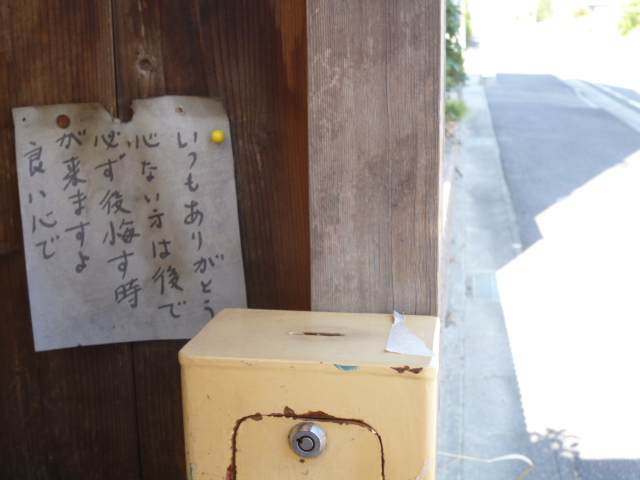 いつもありがとう
心ない方は後で
必ず後悔す時
が来ますよ
良い心で